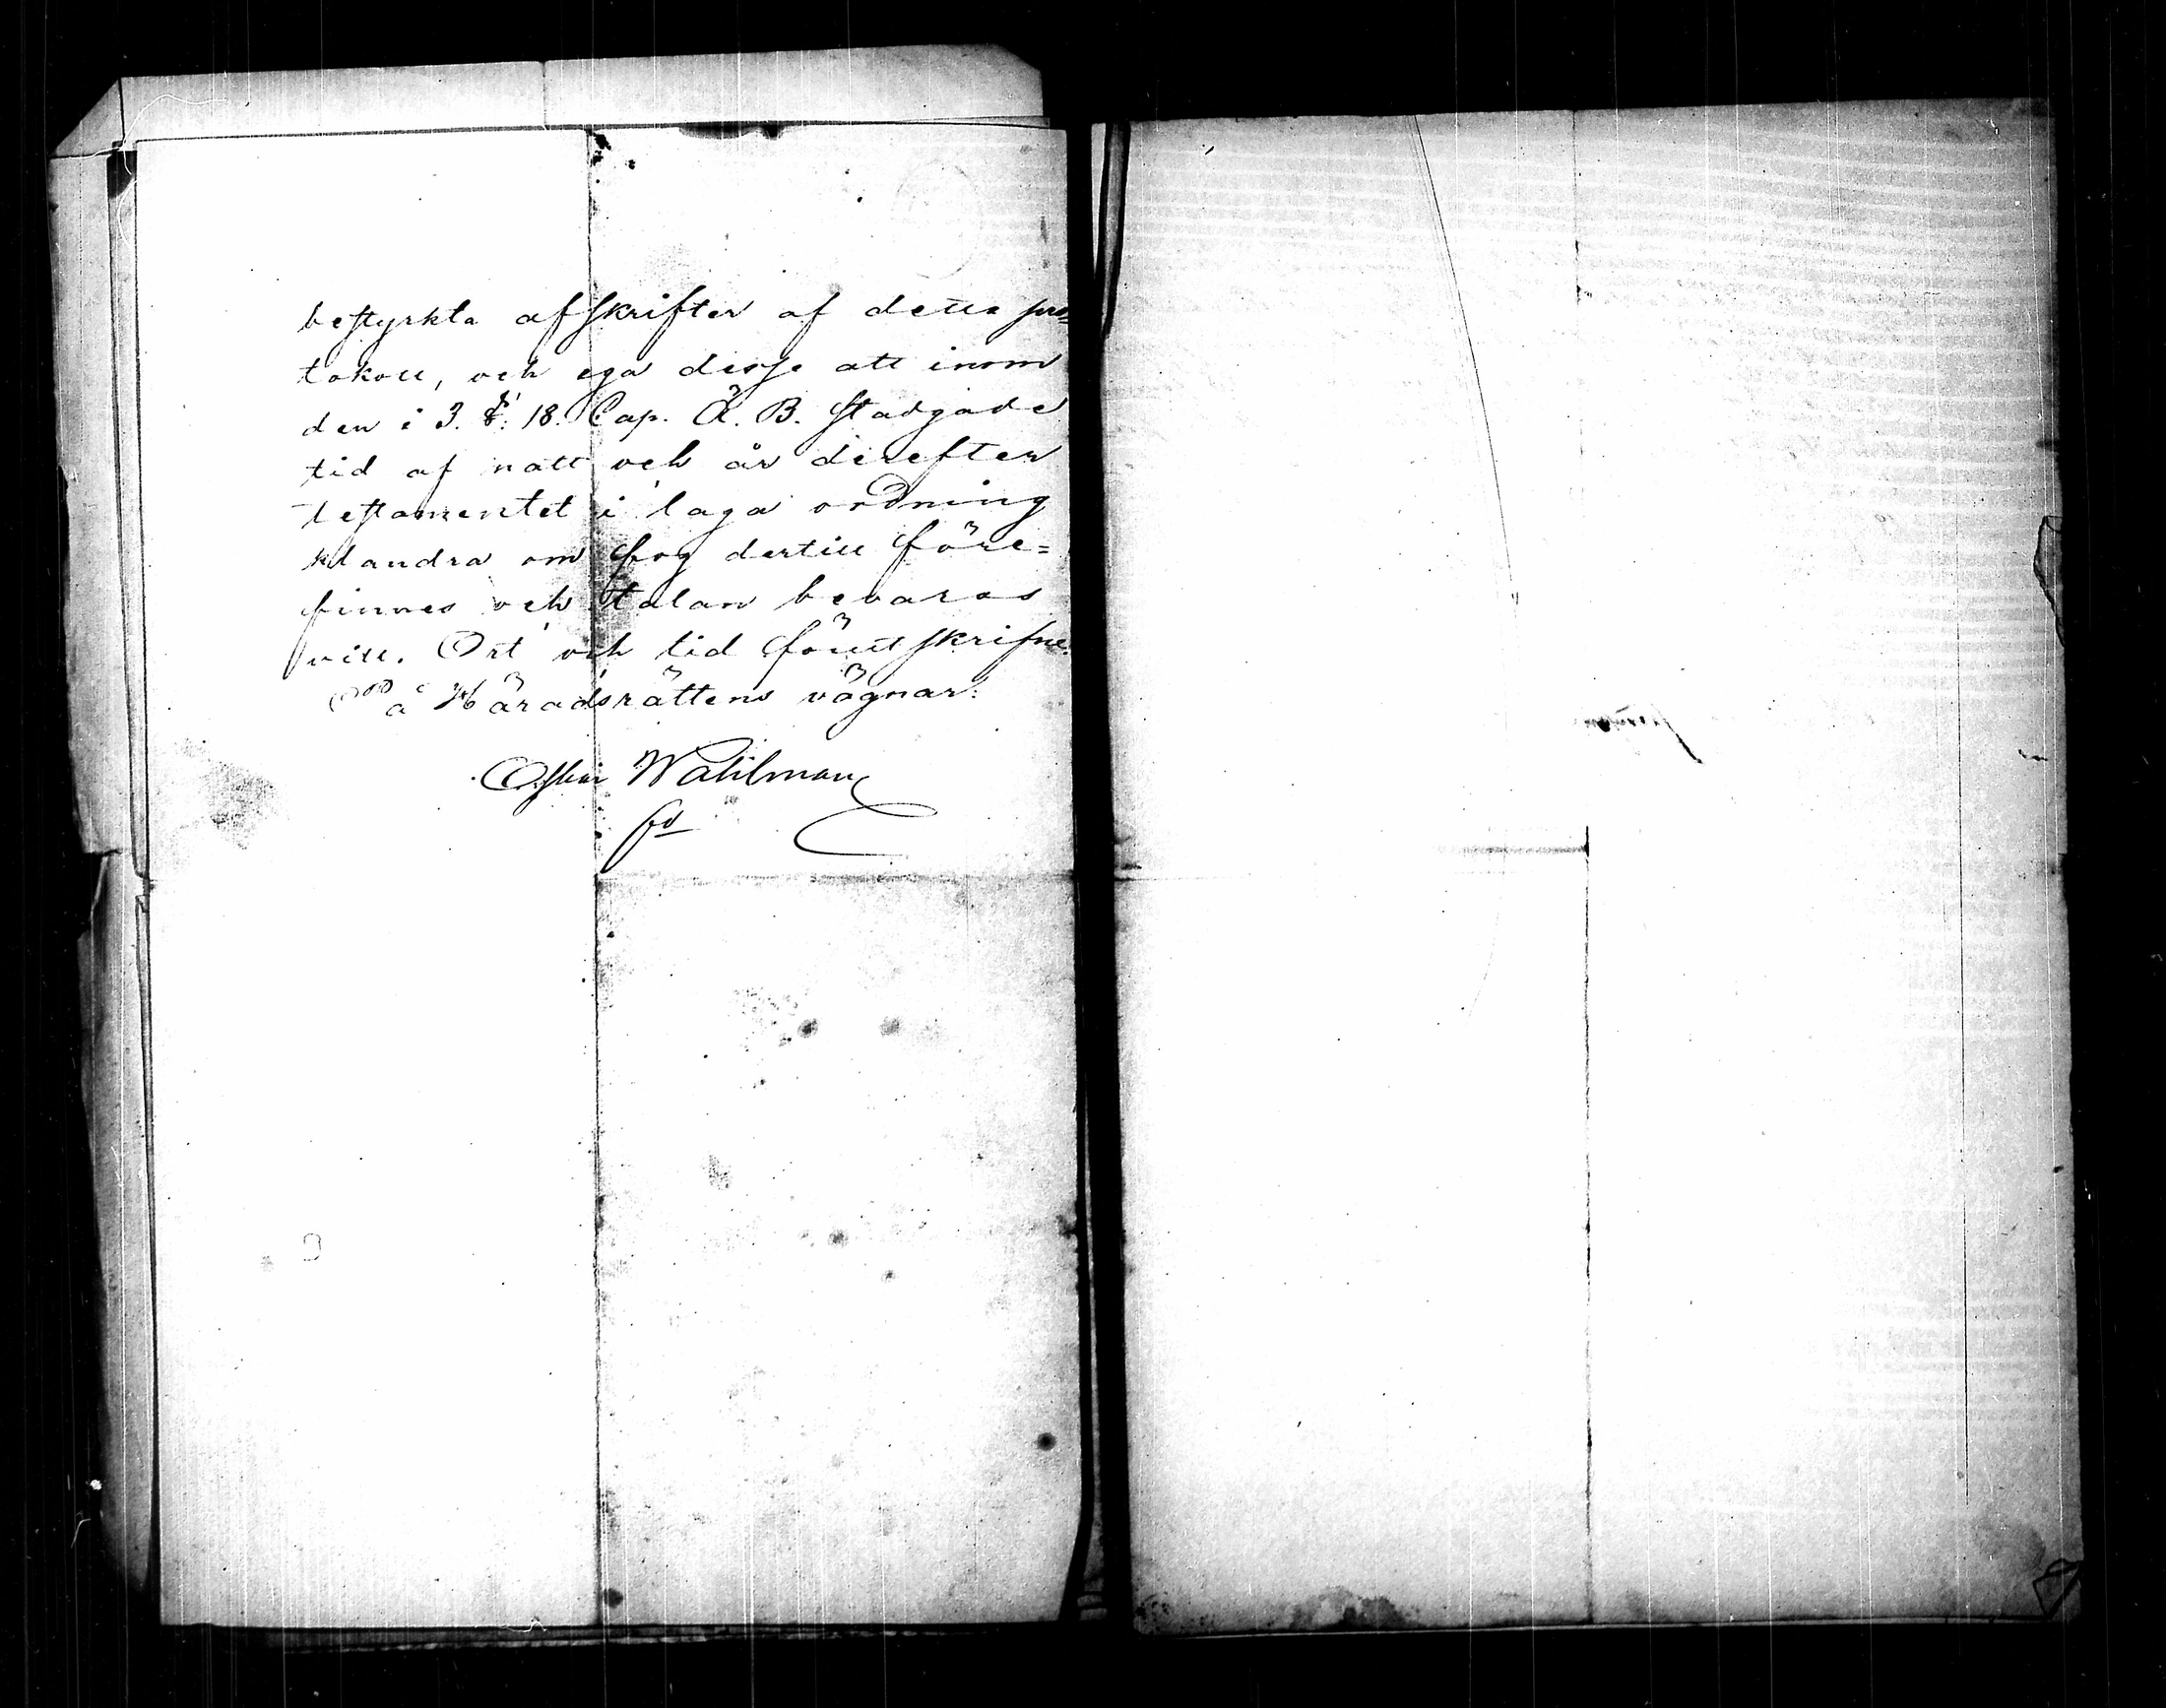 bestyrkta afskrifter af detta pro-
tokoll, och ega desse att inom
den i 3. §. 18. Cap. Ä. B. stadgade
tid af natt och år derefter
testamentet i laga ordning
klandra om fog dertill före=
finnes och talan bevaras
vill. Ort och tid förutskrifne.
På Häradsrättens vägnar:
Oskar Wahlman